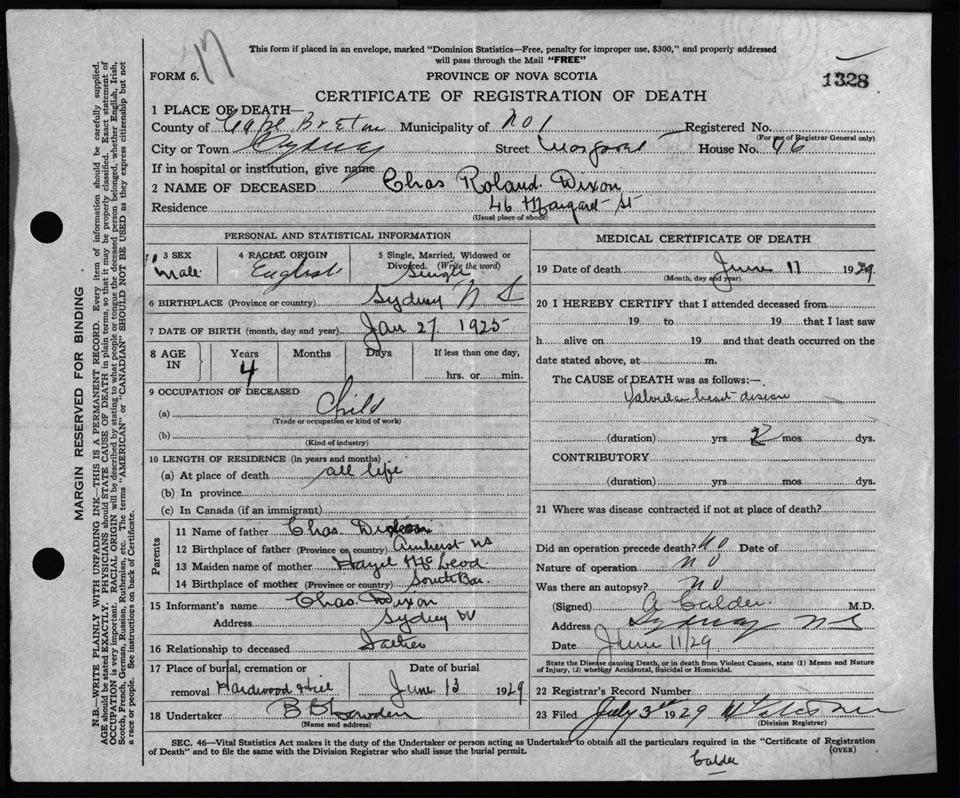 17
This form if placed in an envelope, marked "Dominion Statistics—Free, penalty for improper use, $300," and properly addressed
will pass through the Mail "FREE"
FORM 6.
PROVINCE OF NOVA SCOTIA
1328
CERTIFICATE OF REGISTRATION OF DEATH
1 PLACE OF DEATH—
County of Cape Breton Municipality of No 1 Registered No.
(For use of Registrar General only)
City or Town Sydney Street House No. 46
If in hospital or institution, give name
2 NAME OF DECEASED Chas Roland Dixon
Residence 46 Margaret St
(Usual place of abode)
PERSONAL AND STATISTICAL INFORMATION
3 SEX Male
4 RACIAL ORIGIN English
5 Single, Married, Widowed or
Divorced. (Write the word)
Single
6 BIRTHPLACE (Province or country) Sydney N S
7 DATE OF BIRTH (month, day and year) Jan 27 1925
8 AGE
IN
Years 4
Months
Days
If less than one day,
hrs. or min.
9 OCCUPATION OF DECEASED
(a) Child
(Trade or occupation or kind of work)
(b)
(Kind of industry)
10 LENGTH OF RESIDENCE (in years and months)
(a) At place of death all life
(b) In province
(c) In Canada (if an immigrant)
Parents
11 Name of father Chas. Dixon
12 Birthplace of father (Province or country) Amherst NS
13 Maiden name of mother Hazel McLeod
14 Birthplace of mother (Province or country) South Bar
15 Informant's name Chas Dixon
Address Sydney
16 Relationship to deceased Father
17 Place of burial, cremation or
removal Hardwood Hill
Date of burial
June 13 1929
18 Undertaker
(Name and address)
MEDICAL CERTIFICATE OF DEATH
19 Date of death June 11 1929
(Month, day and year)
20 I HEREBY CERTIFY that I attended deceased from
19 to 19 that I last saw
h alive on 19 and that death occurred on the
date stated above, at m.
The CAUSE of DEATH was as follows:—
Valvular heart disease
(duration) yrs 2 mos dys.
CONTRIBUTORY
(duration) yrs mos dys.
21 Where was disease contracted if not at place of death?
Did an operation precede death? No Date of
Nature of operation No
Was there an autopsy? No
(Signed) A Calder M.D.
Address Sydney NS
Date June 11/29
State the Disease causing Death, or in death from Violent Causes, state (1) Means and Nature
of Injury, (2) whether Accidental, Suicidal or Homicidal.
22 Registrar's Record Number
23 Filed July 3rd 1929
(Division Registrar)
SEC. 46—Vital Statistics Act makes it the duty of the Undertaker or person acting as Undertaker to obtain all the particulars required in the "Certificate of Registration
of Death" and to file the same with the Division Registrar who shall issue the burial permit.
(OVER)
Calder
MARGIN RESERVED FOR BINDING
N.B.—WRITE PLAINLY WITH UNFADING INK—THIS IS A PERMANENT RECORD. Every item of information should be carefully supplied.
AGE should be stated EXACTLY. PHYSICIANS should STATE CAUSE OF DEATH in plain terms, so that it may be properly classified. Exact statement of
OCCUPATION is very important. RACIAL ORIGIN will be described by stating to what people or tongue the deceased person belonged, whether English, Irish,
Scotch, French, German, Russian, Ruthenian, etc. The terms "AMERICAN" or "CANADIAN" SHOULD NOT BE USED as they express citizenship but not
a race or people. See instructions on back of Certificate.